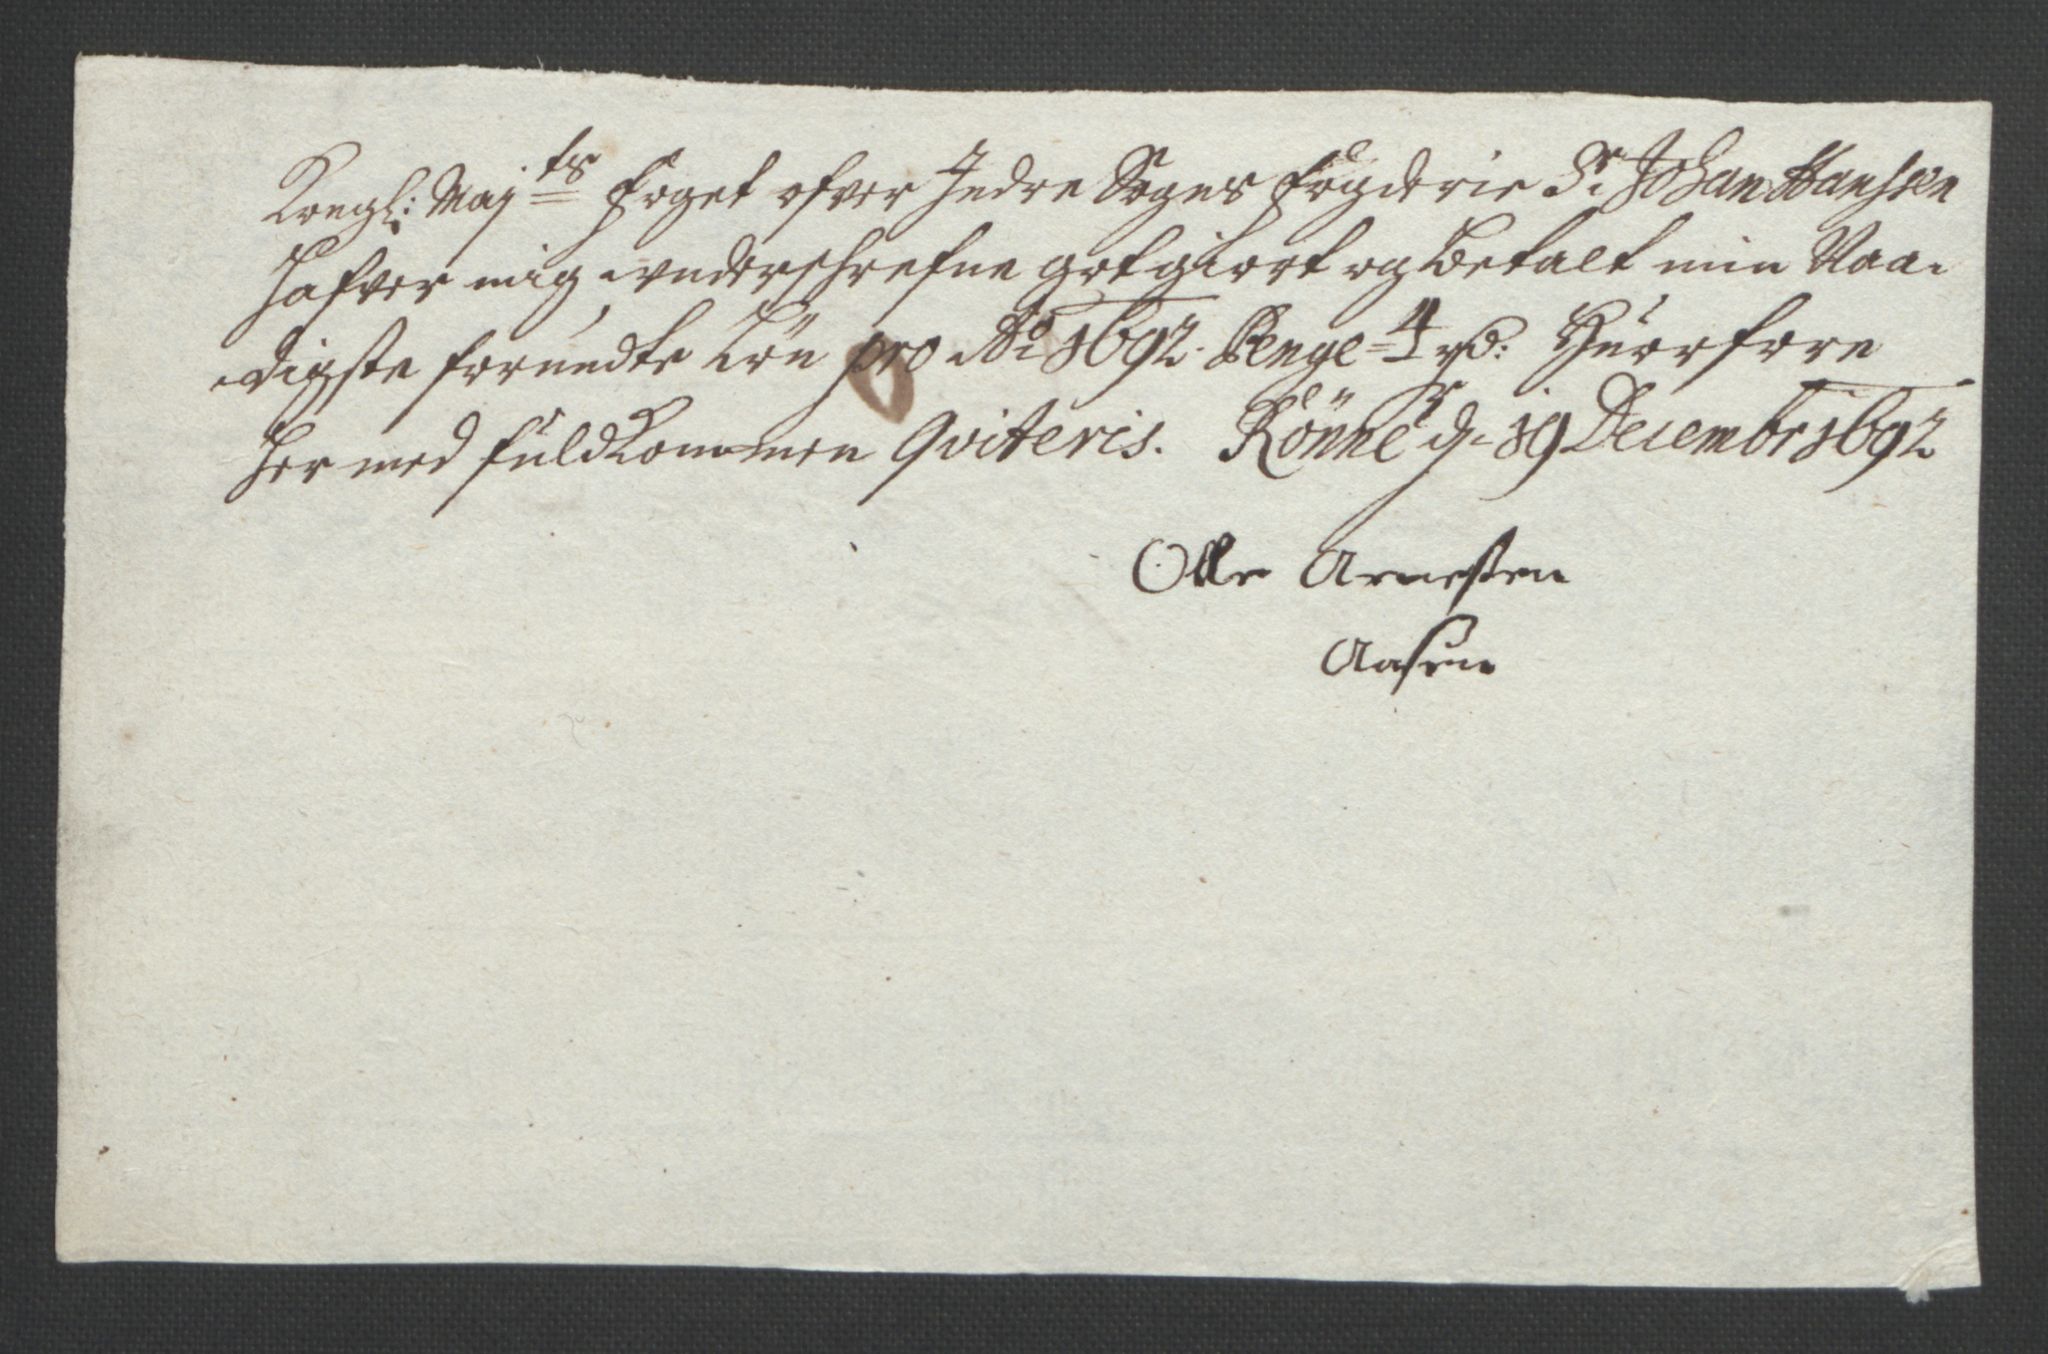 Kongl: Maj^ts foget ofver Indre Sogns fogderie Sr Johan Hanssen
Hafver mig underschrefne godgiort og betalt min Naa-
digste forundte Løn pro Ao 1692. Penge = 4 rd: Huorfore
Her med fuldkommen Qviteris. Rönne d. 19 Decembr 1692
Olle Arnesen
Aasen